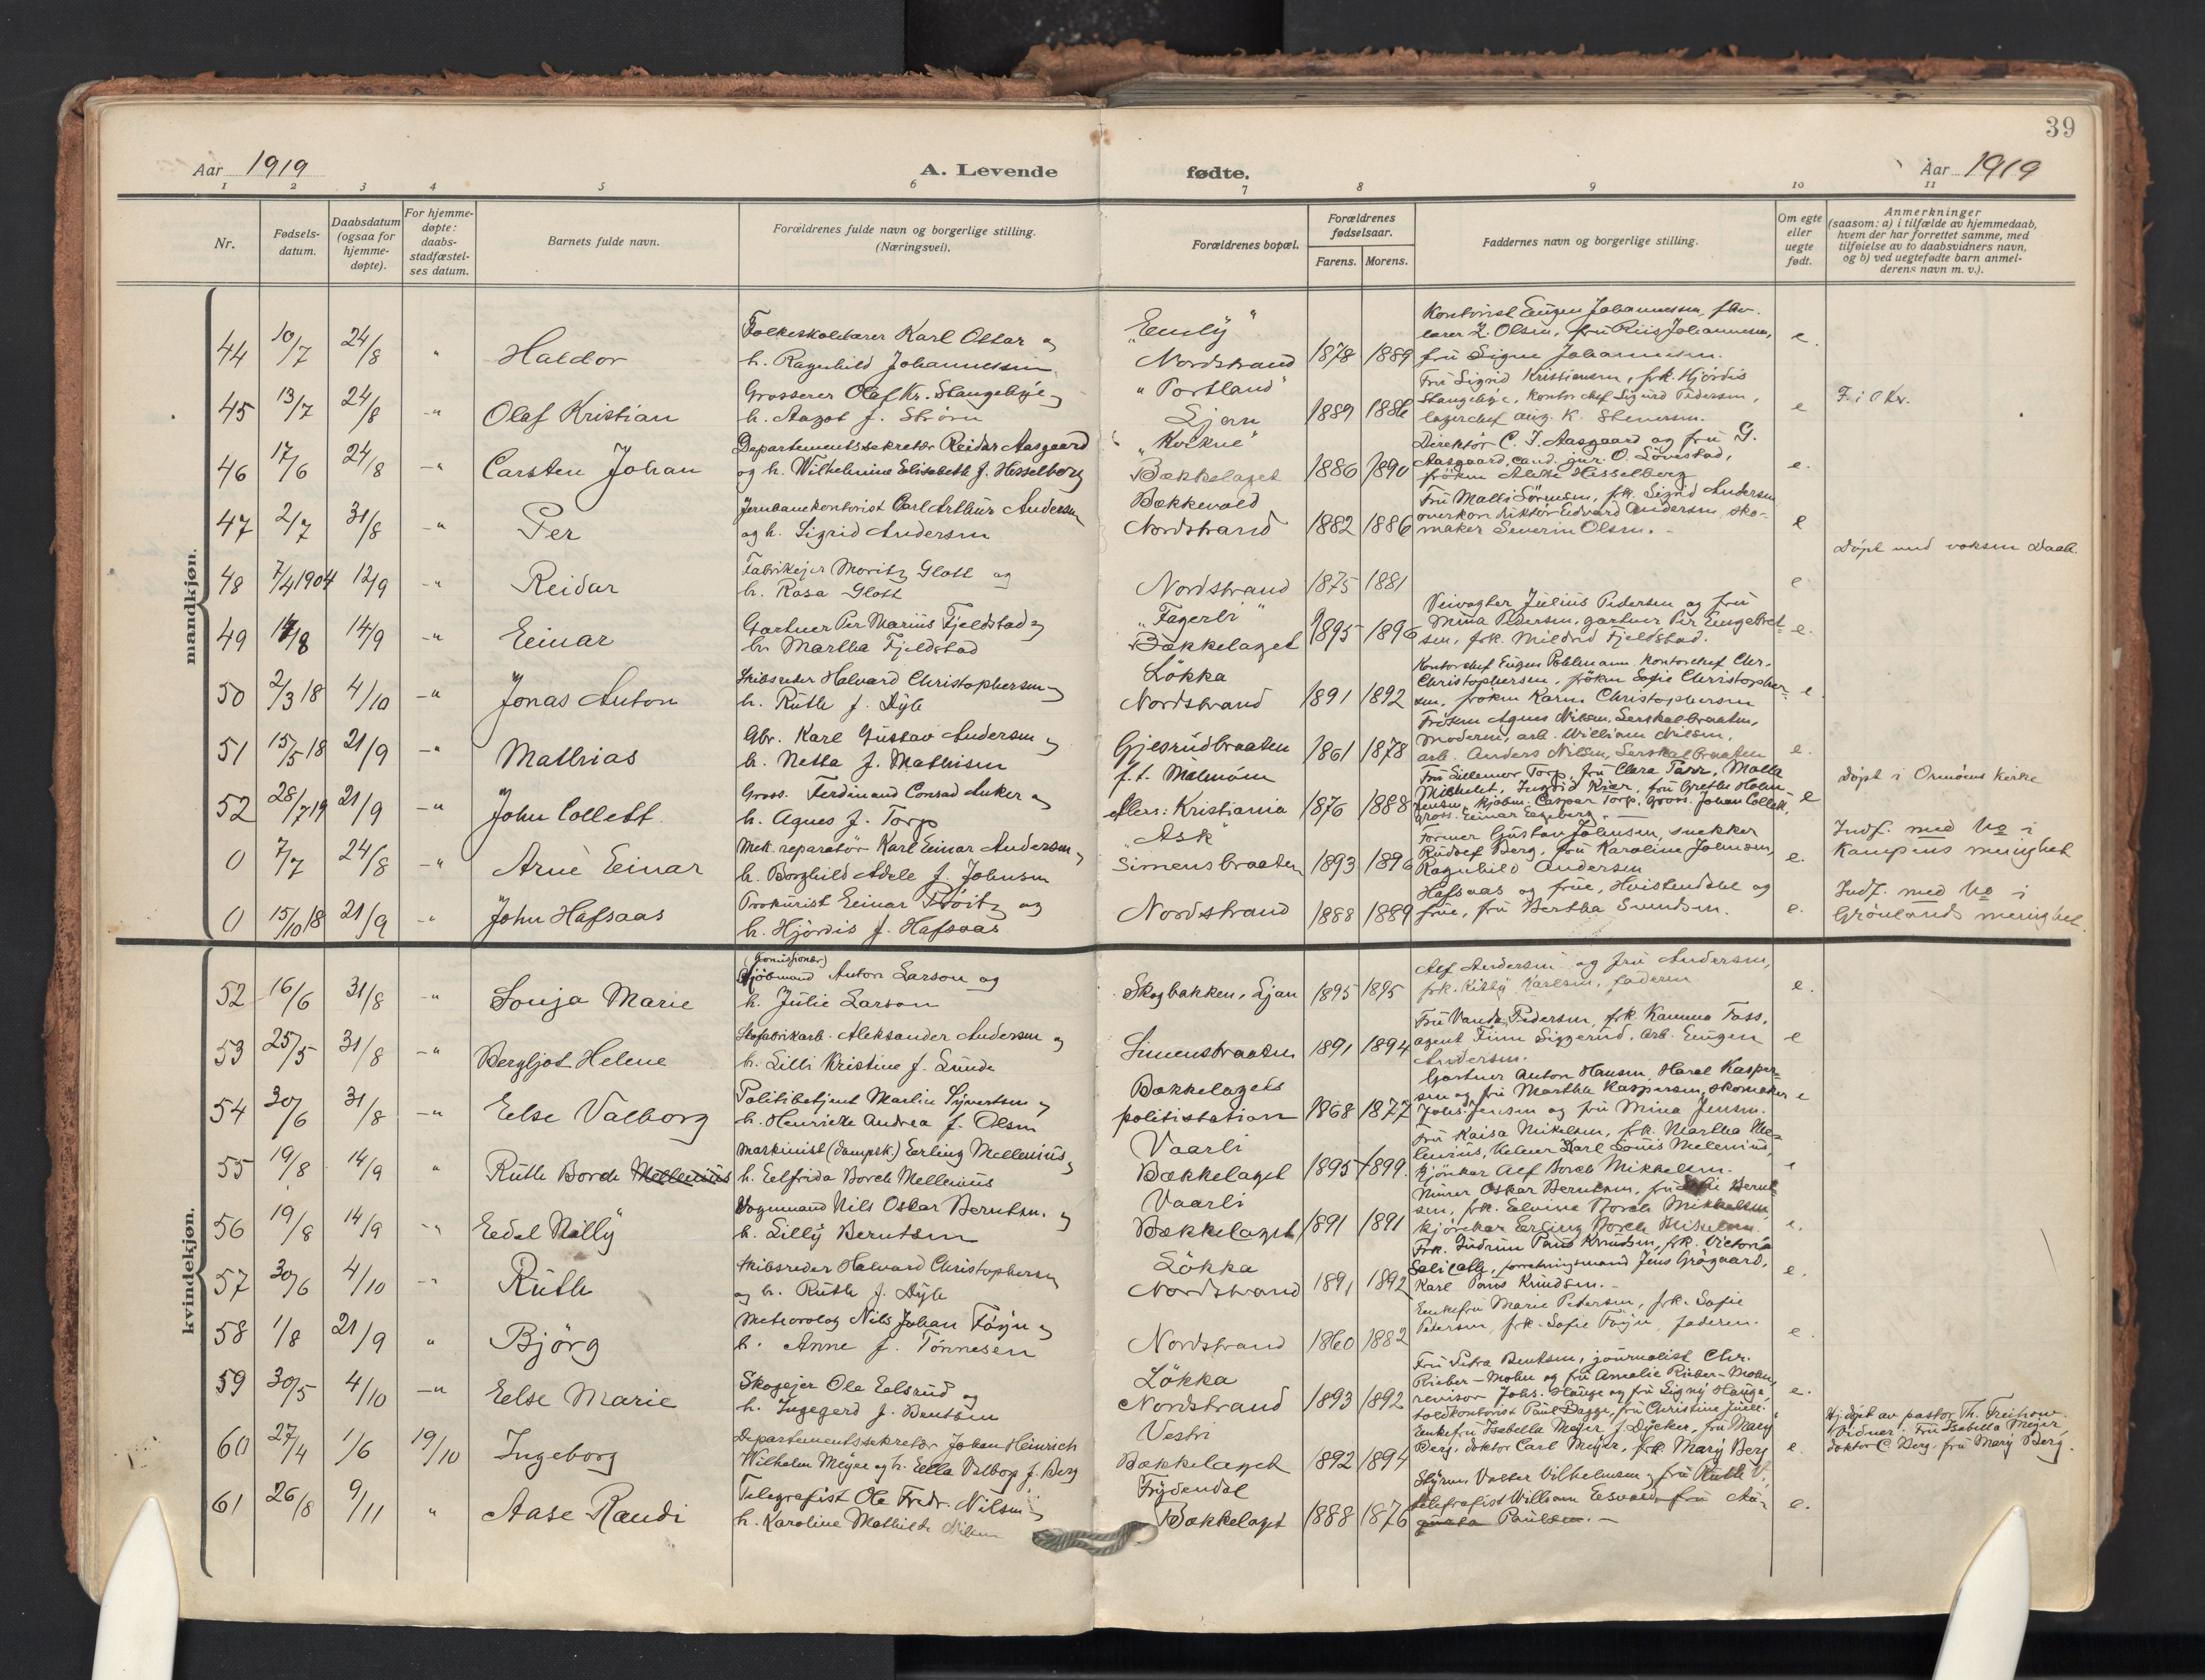 39
Aar 1919
A. Levende fødte.
Aar 1919
1 2 3 4 5 6 7 8 9 10 11
Nr.
Fødsels-
datum.
Daabsdatum
(ogsaa for
hjemme-
døpte).
For hjemme-
døpte:
daabs-
stadfæstel-
ses datum.
Barnets fulde navn.
Forældrenes fulde navn og borgerlige stilling.
(Næringsvei).
Forældrenes bopæl.
Forældrenes
fødselsaar.
Farens. Morens.
Faddernes navn og borgerlige stilling.
Om egte
eller
uegte
født.
Anmerkninger
(saasom: a) i tilfælde av hjemmedaab,
hvem der har forrettet samme, med
tilføielse av to daabsvidners navn,
og b) ved uegtefødte barn anmel-
derens navn m. v.).
mandkjøn.
44 10/7 24/8 " Haldor
Folkeskolelærer Karl Oskar og
h. Ragnhild Johannessen
"Emly"
Nordstrand 1878 1889
Kontorist Eugen Johannessen,
lærer L. Olsen, fru Riis Johannessen,
fru Signe Johannessen. e.
45 13/7 24/8 -" Olaf Kristian
Grosserer Olaf Kr. Stangebye og
h. Aagot f. Strøm
"Portland"
Ljan 1889 1886
Fru Sigrid Kristiansen, frk. Hjördis
Stangebye, kontorchef Sigurd Pedersen,
lagerchef aug. K. Stenersen. e
F. i O Kr.
46 17/6 24/8 -" Carsten Johan
Departementssekretær Reidar Aasgaard
og h. Wilhelmine Elisabeth f. Hesselberg
Bækkelaget 1886 1890
Direktör C. J. Aasgaard og fru G.
Aasgaard, cand. jur. O. Lövestad,
fröken Hesselberg e.
47 2/7 31/8 -" Per
Jernbanekontorist Carl Arthur Andersen
og h. Sigrid Andersen
Bækkevold
Nordstrand 1882 1886
Fru Malli Sörensen, frk. Sigrid Andersen
overkonduktör Edvard Andersen, sko-
maker Severin Olsen. e
48 7/4 1904 12/9 -" Reidar
Fabrikejer Moritz Glott og
h. Rosa Glott
Nordstrand 1875 1881 e
Döpt ved voksen Daab.
49 14/8 14/9 -" Einar
Gartner Per Marius Fjeldstad og
h. Martha Fjeldstad
"Fagerli"
Bækkelaget 1895 1896
Veivogter Julius Pedersen og fru
Mina Pedersen, gartner Per Engebret-
sen, frk. Mildrid Fjeldstad. e.
50 2/3 18 4/10 -" Jonas Anton
Skibsreder Halvard Christophersen og
h. Ruth f. Dyb
Lökka
Nordstrand 1891 1892
Kontorchef Eugen Pohlmann, kontorchef Chr.
Christophersen, fröken Sofie Christopher-
sen, fröken Karen Christophersen e.
51 15/5 18 21/9 -" Mathias
Gbr. Karl Gustav Andersen og
h. Netta f. Mathisen
Gjersrudbraaten 1861 1878
Fröken Agnes Nilsen, Lerskalbraaten,
moderen, arb. William Nilsen,
arb. Anders Nilsen, Lerskalbraaten e.
52 28/7 19 21/9 -" John Collett
Gross. Ferdinand Conrad Anker og
h. Agnes f. Torp
f.t. Malmöen
ellers: Kristiania 1876 1888
Fru Lillemor Torp, fru Clara Parr, Molla
Michelet, Ingrid Kiær, fru Grethe Holm-
Jensen, kjöbm. Caspar Torp, gross. Johan Collett,
Gross. Einar Engeberg. e
döpt i Ormöens kirke
0 7/7 24/8 -" Arne Einar
Mek. reparatør Karl Einar Andersen og
h. Borghild Adele f. Johnsen
"Ask"
Simensbraaten 1893 1896
Former Gustav Johnsen, snekker
Rudolf Berg, fru Karoline Johnsen,
Ragnhild Andersen e.
Indf. med No i
Kampens menighet
0 15/10 18 21/9 -" John Hafsaas
Prokurist Einar Pröitz og
h. Hjördis f. Hafsaas
Nordstrand 1888 1889
Hafsaas og frue, Hvistendahl og
frue, fru Bertha Svendsen. e.
Indf. med No i
Grönlands menighet.
kvindekjøn.
52 16/6 31/8 -" Sonja Marie
Kjöbmand Anton Larson og
h. Julie Larson
Skogbakken, Ljan 1895 1895
Alf Andersen og fru Andersen,
frk. Kitty Karlsen, faderen e.
53 25/5 31/8 -" Bergljot Helene
Skofabrikarb. Aleksander Andersen og
h. Lilli Kristine f. Lunde
Simensbraaten 1891 1894
Fru Vanda Pedersen, frk. Kamma Foss,
agent Finn Siggerud, arb. Eugen
Andersen. e
54 30/6 31/8 -" Else Valborg
Politibetjent Martin Syvertsen og
h. Henriette Andrea f. Olsen
Bækkelagets
politistation 1868 1877
Gartner Anton Hansen, Harel Kasper-
sen og fru Martha Kaspersen, skomaker
Johs. Jensen og fru Mina Jensen. e
55 19/8 14/9 " Ruth Borch Mellenius
Maskinist (dampsk.) Erling Mellenius og
h. Elfrida Borch Mellenius
Vaarli
Bækkelaget 1895 1899
Fru Kaisa Mikelsen, frk. Martha Mel-
lenius, Kelner Karl Louis Mellenius,
kjörekar Alf Borch Mikkelsen.
56 19/8 14/9 -" Edel Nelly
Vognmand Nils Oskar Berntsen og
h. Lilly Berntsen
Vaarli
Bækkelaget 1891 1891
Murer Oskar Berntsen, fru Sofie Bernt-
sen, frk. Elvine Borch Mikkelsen,
kjörekar Erling Borch Mikkelsen. e.
57 30/6 4/10 -" Ruth
Skibsreder Halvard Christophersen
og h. Ruth f. Dyb
Lökka
Nordstrand 1891 1892
Frk. Gudrun Paus Knudsen, frk. Victoria
forretningsmand Jens Grögaard,
Karl Paus Knudsen. e.
58 1/8 21/9 " Björg
Meteorolog Nils Johan Föyn og
h. Anne f. Tönnesen
Nordstrand 1860 1882
Enkefru Marie Petersen, frk. Sofie
Petersen, frk. Sofie Föyn, faderen. e.
59 30/5 4/10 -" Else Marie
Skogejer Ole Elsrud og
h. Ingegerd f. Bentsen
Lökka
Nordstrand 1893 1892
Fru Petra Bentsen, journalist Chr.
Rieber-Mohn og fru Amalie Rieber-Mohn,
revisor Johs. Hauge og fru Signy Hauge,
toldkontorist Paul Bagge, fru Christine Juell. e.
60 27/4 1/6 19/10 Ingeborg
Departementssekretær Johan Heinrich
Wilhelm Meyer og h. Ella Valborg f. Berg
Vestvi
Bækkelaget 1892 1894
Enkefru Isabella Meyer f. Dycker, fru Mary
Berg, doktor Carl Meyer, frk. Mary Berg e.
Hj. döpt av pastor Th. Freihow.
Vidner: Fru Isabella Meyer
doktor C Berg, fru Mary Berg.
61 26/8 9/11 " Aase Randi
Telegrafist Ole Fredr. Nilsen og
h. Karoline Mathilde Nilsen
Frydendal
Bækkelaget 1888 1876
Styrm. Valter Vilhelmsen og fru Ruth V.,
telefrafist William fru Au-
gusta Paulsen. e.